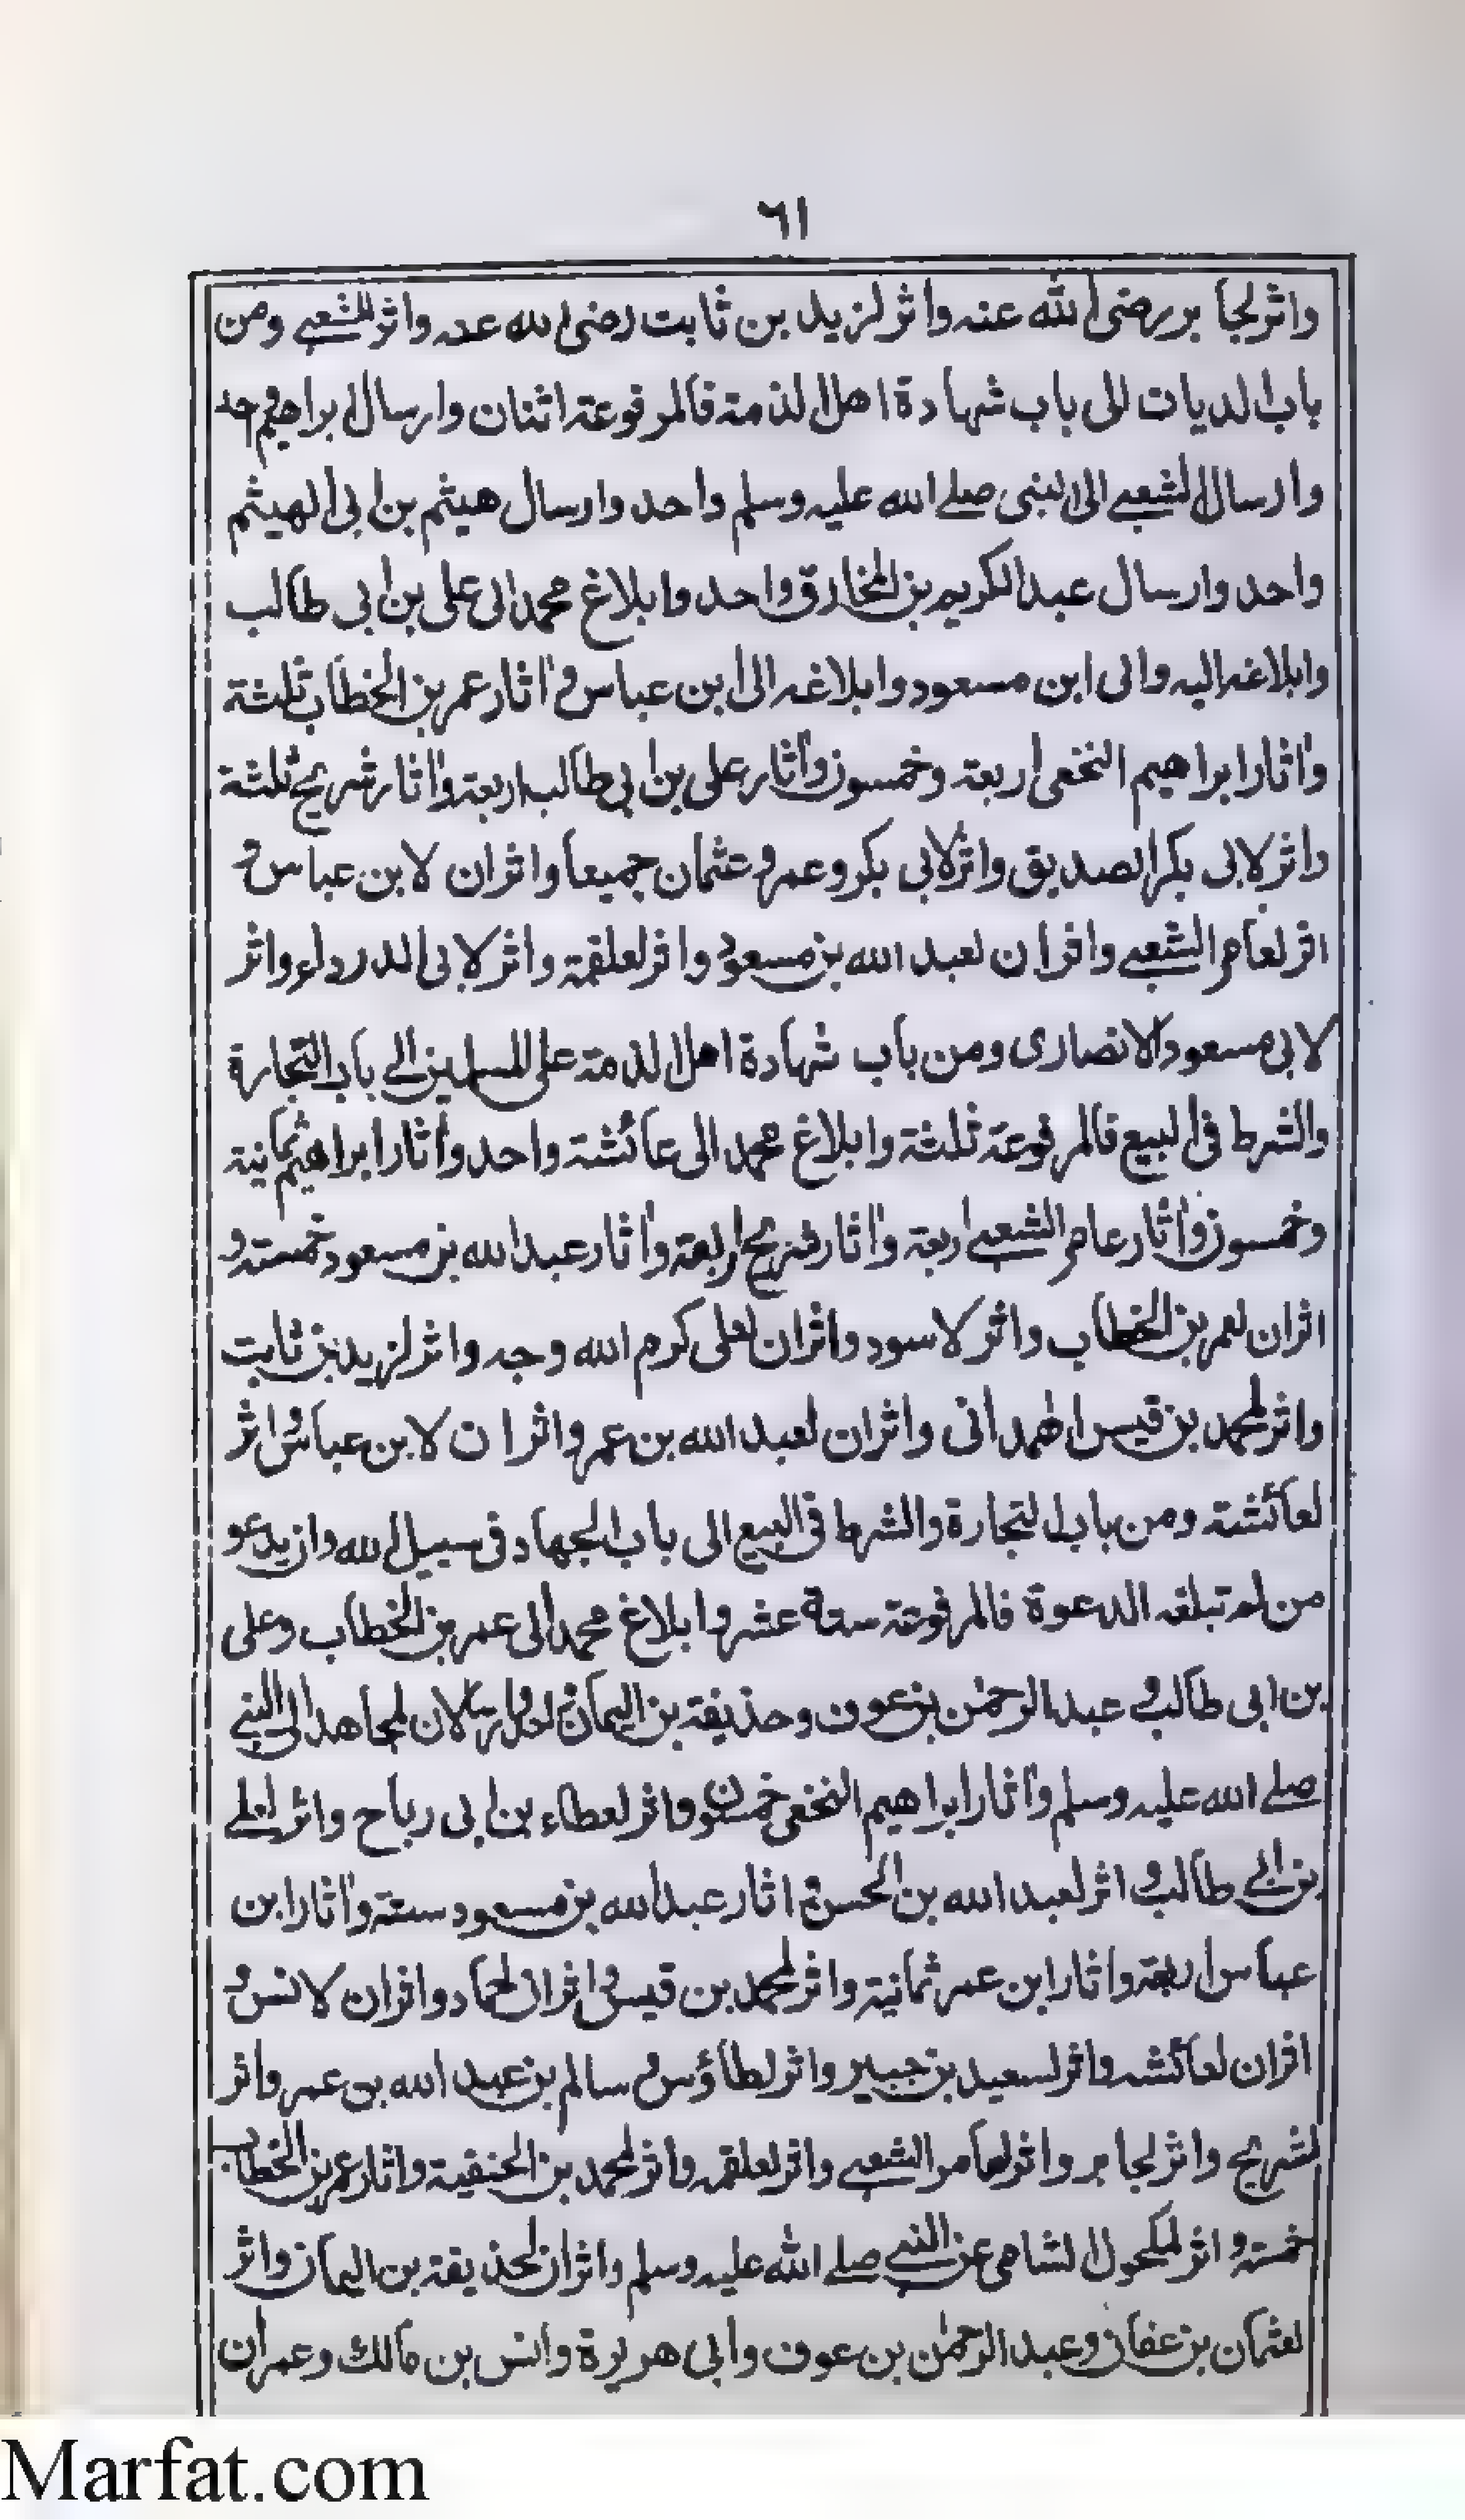 ٦١
واثر لجابر رضی الله عنه واثر لزید بن ثابت رضی الله عنه واثر للشعبے ومن
باب الدیات الی باب شهادة اهل الذمة فالمرفوعة اثنان وارسال ابراهیم واحد
وارسال الشعبے الی النبی صلے الله علیه وسلم واحد وارسال هیثم بن ابی الهیثم
واحد وارسال عبد الکریم بن المخارق واحد وابلاغ محمد الی علی بن ابی طالب
وابلاغه الیه والی ابن مسعود وابلاغه الی ابن عباس و اٰثار عمر بن الخطاب ثلثة
واٰثار ابراهیم النخعی اربعة وخمسون واٰثار علی بن ابی طالب اربعة واٰثار شریح ثلثة
واثر لابی بکر الصدیق واثر لابی بکر وعمر و عثمان جمیعا واثران لابن عباس و
اثر لعامر الشعبے واثران لعبد الله بن مسعود واثر لعلقمة واثر لابی الدرداء واثر
لابی مسعود الانصاری ومن باب شهادة اهل الذمة علی المسلمین الے باب التجارة
والشرط فی البیع فالمرفوعة ثلثة وابلاغ محمد الی عائشة واحد واٰثار ابراهیم ثمانیة
وخمسون واٰثار عامر الشعبے اربعة واٰثار شریح اربعة واٰثار عبد الله بن مسعود خمسة و
اثران لعمر بن الخطاب واثر لاسود واثران لعلی کرم الله وجه واثر لزید بن ثابت
واثر لمحمد بن قیس الهمدانی واثران لعبد الله بن عمر واثران لابن عباس و اثر
لعائشة ومن باب التجارة والشرط فی البیع الی باب الجهاد فی سبیل الله وان یدعو
من لم تبلغه الدعوة فالمرفوعة ستة عشر وابلاغ محمد الی عمر بن الخطاب وعلی
بن ابی طالب و عبد الرحمٰن بن عوف وحذیفة بن الیمان وارسالان لمجاهد الی النبے
صلے الله علیه وسلم واٰثار ابراهیم النخعی خمسون واثر لعطاء بن ابی رباح واثر لعلے
بن ابے طالب و اثر لعبد الله بن الحسن و اٰثار عبد الله بن مسعود ستة واٰثار ابن
عباس اربعة واٰثار ابن عمر ثمانیة واثر لمحمد بن قیس و اثران لحماد واثران لانس و
اثران لعائشه واثر لسعید بن جبیر واثر لطاؤس و سالم بن عبد الله بن عمر واثر
لشریح واثر لجابر واثر لعامر الشعبے واثر لعلقمه واثر لمحمد بن الحنفیة واٰثار عمر بن الخطاب
خمسة و اثر لمکحول الشامی عن النبے صلے الله علیه وسلم واثران لحذیفة بن الیمان واثر
لعثمان بن عفان وعبد الرحمٰن بن عوف وابی هریرة وانس بن مالك وعمران
Marfat.com